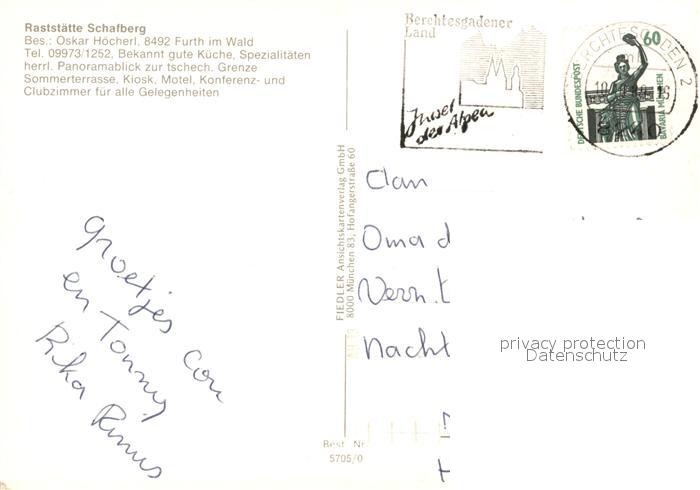 Raststätte Schafberg
Bes.: Oskar Höcherl, 8492 Furth im Wald
Tel. 09973/1252, Bekannt gute Küche, Spezialitäten
herrl. Panoramablick zur tschech. Grenze
Sommerterrasse, Kiosk, Motel, Konferenz- und
Clubzimmer für alle Gelegenheiten
Berchtesgadener
Land
Insel
der Alpen
60
DEUTSCHE BUNDESPOST
BAVARIA MÜNCHEN
FIEDLER Ansichtskartenverlag GmbH
8000 München 83, Hofangerstraße 60
Oma d
Nacht
groetjes
en Tonny
Rika
privacy protection
Datenschutz
Best. Nr.
5705/0